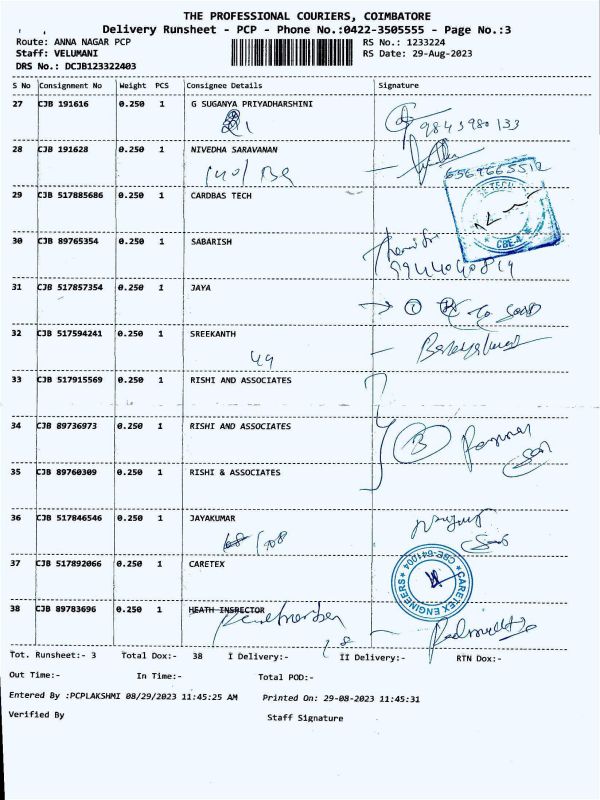 THE PROFESSIONAL COURIERS, COIMBATORE
Delivery Runsheet - PCP - Phone No.:0422-3505555 - Page No.:3
Route: ANNA NAGAR PCP RS No.: 1233224
Staff: VELUMANI RS Date: 29-Aug-2023
DRS No.: DCJB123322403
S No Consignment No Weight PCS Consignee Details Signature
27 CJB 191616 0.250 1 G SUGANYA PRIYADHARSHINI
28 CJB 191628 0.250 1 NIVEDHA SARAVANAN
29 CJB 517885686 0.250 1 CARDBAS TECH
30 CJB 89765354 0.250 1 SABARISH
31 CJB 517857354 0.250 1 JAYA
32 CJB 517594241 0.250 1 SREEKANTH
49
33 CJB 517915569 0.250 1 RISHI AND ASSOCIATES
34 CJB 89736973 0.250 1 RISHI AND ASSOCIATES
3
35 CJB 89760309 0.250 1 RISHI & ASSOCIATES
36 CJB 517846546 0.250 1 JAYAKUMAR
37 CJB 517892066 0.250 1 CARETEX
CARETEX ENGINEERS CBE-641004
38 CJB 89783696 0.250 1 HEATH INSRECTOR
Tot. Runsheet:- 3 Total Dox:- 38 I Delivery:- II Delivery:- RTN Dox:-
Out Time:- In Time:- Total POD:-
Entered By :PCPLAKSHMI 08/29/2023 11:45:25 AM Printed On: 29-08-2023 11:45:31
Verified By Staff Signature